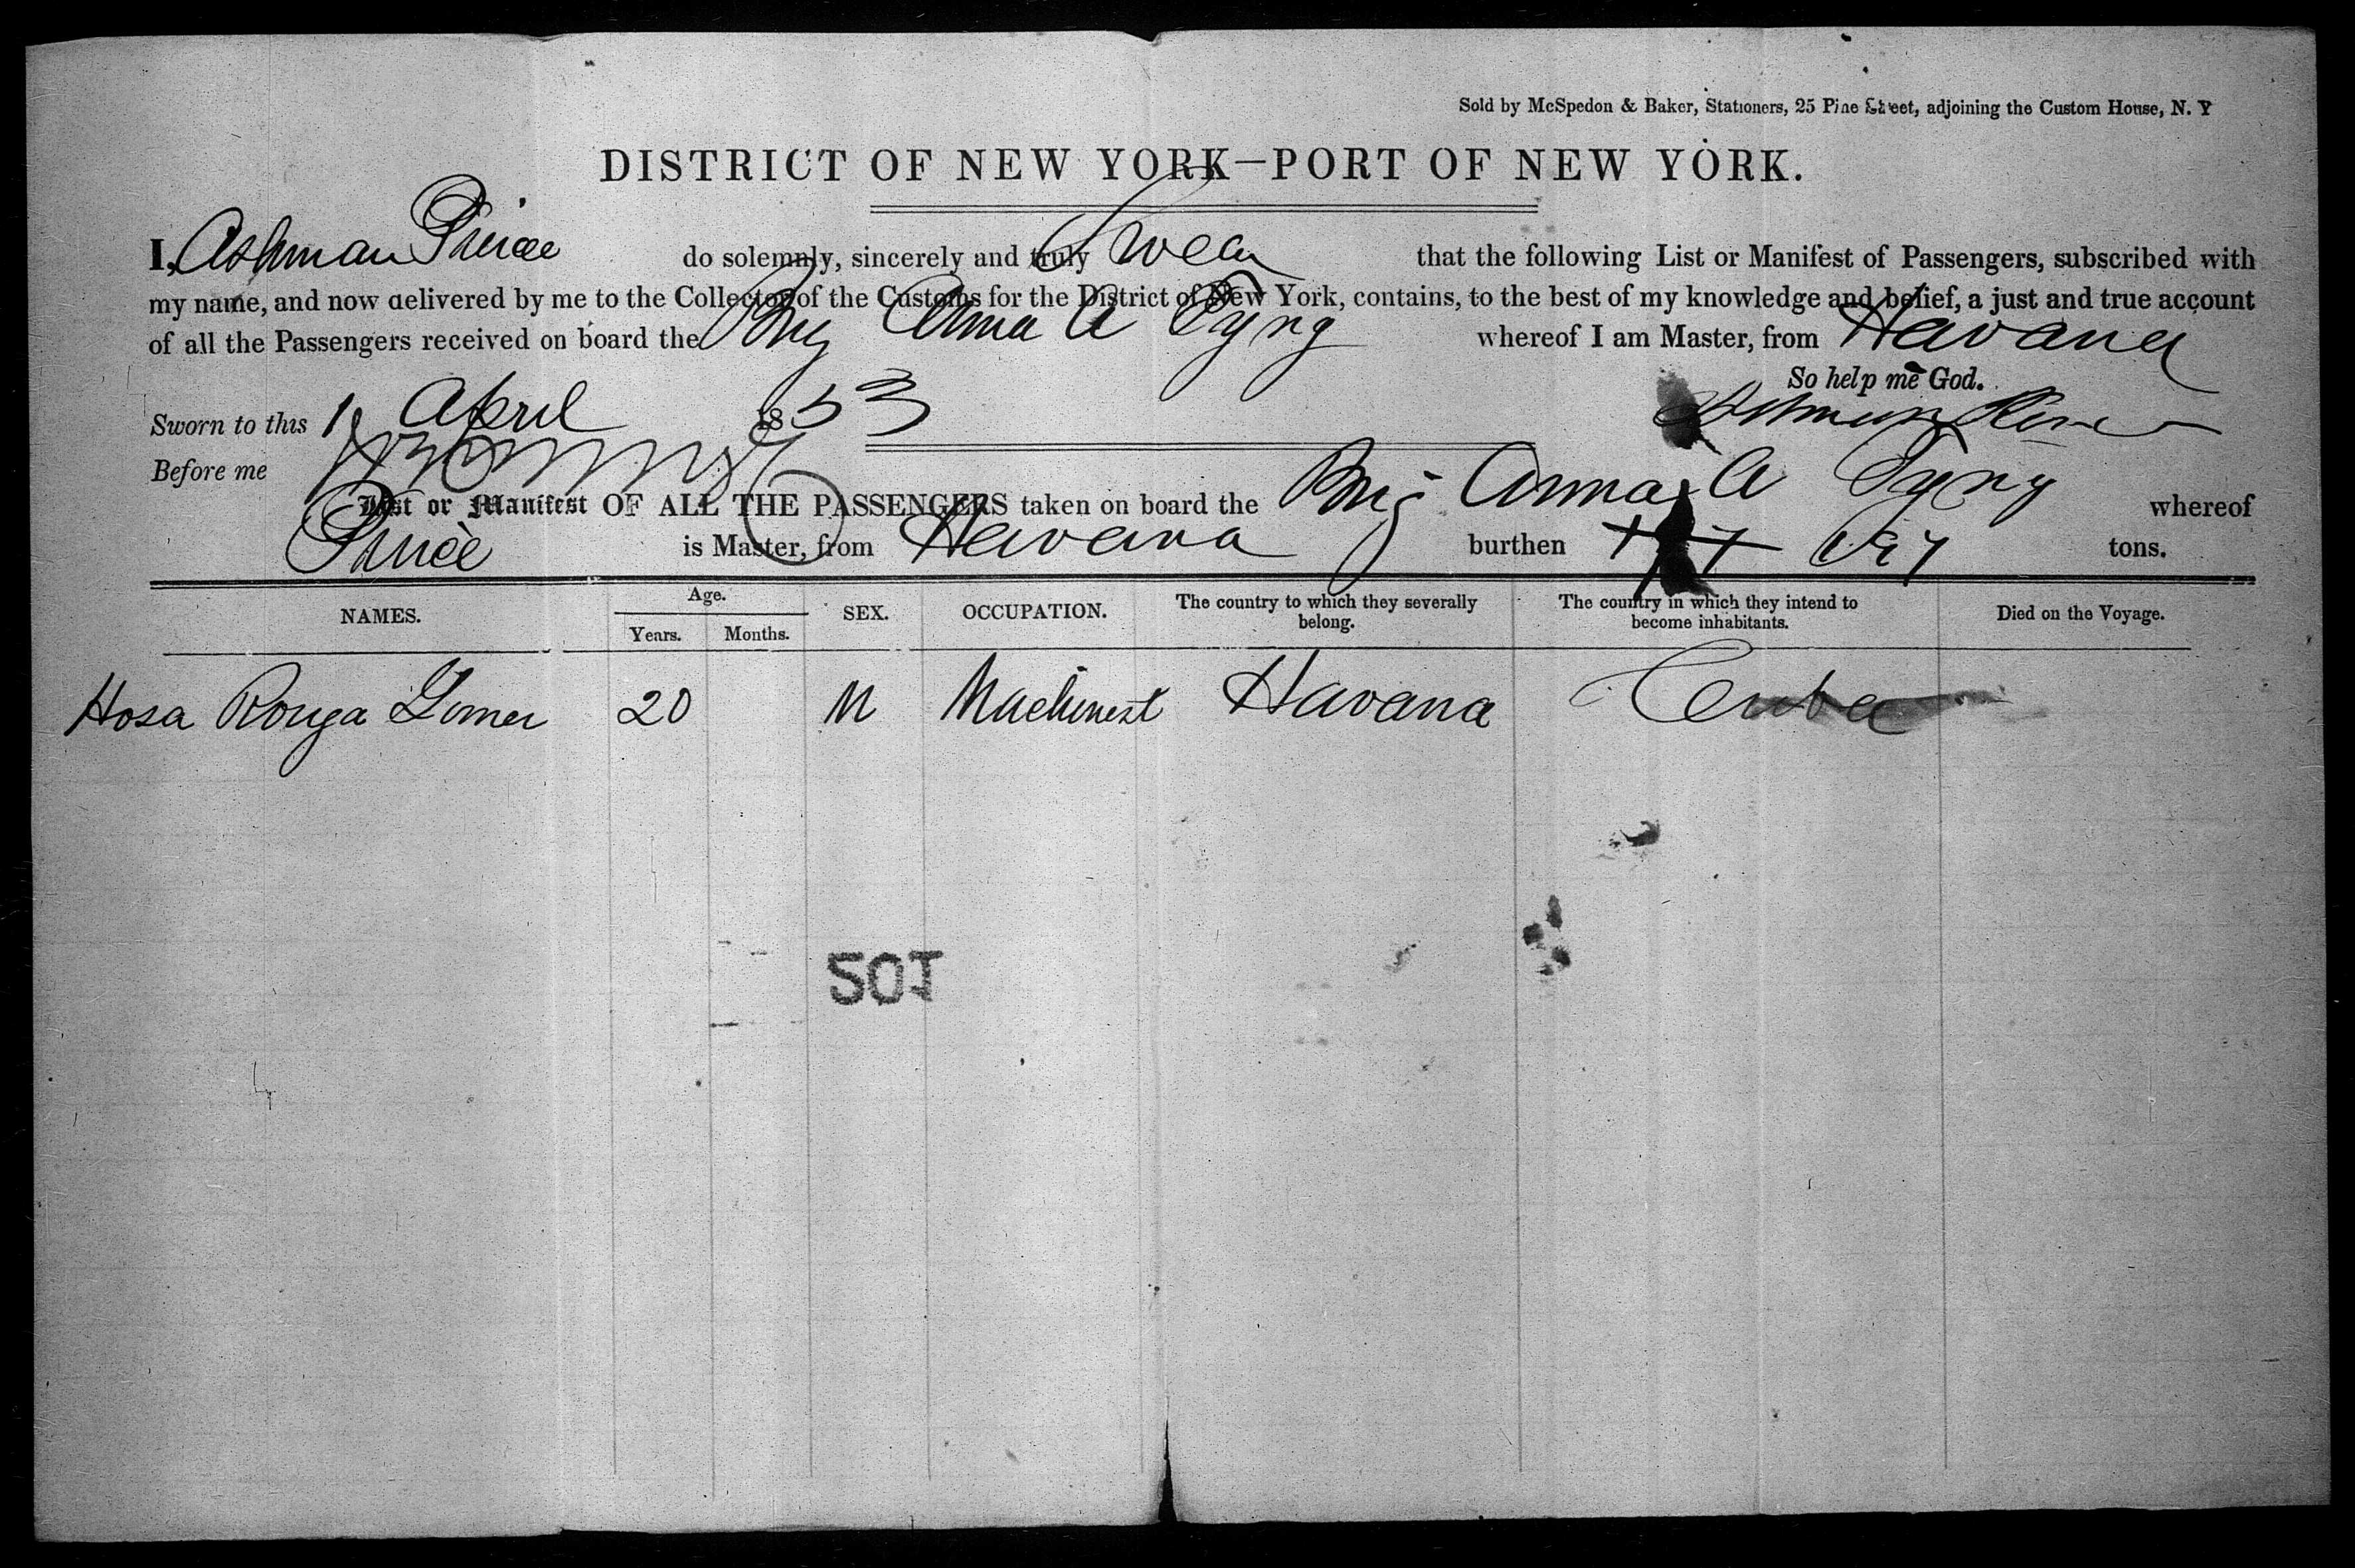 Sold by McSpedon & Baker, Stationers, 25 Pine Street, adjoining the Custom House, N. Y
DISTRICT OF NEW YORK—PORT OF NEW YORK.
I, Ashman do solemnly, sincerely and truly Swear that the following List or Manifest of Passengers, subscribed with
my name, and now delivered by me to the Collector of the Customs for the District of New York, contains, to the best of my knowledge and belief, a just and true account
of all the Passengers received on board the Brig Anna A Tyng whereof I am Master, from Havana
So help me God.
Sworn to this 1 April 1853
Before me
List or Manifest OF ALL THE PASSENGERS taken on board the Brig Anna A Tyng whereof
is Master, from Havana burthen tons.
NAMES. Age. Years. Months. SEX. OCCUPATION. The country to which they severally belong. The country in which they intend to become inhabitants. Died on the Voyage.
Hosa Rouga Gomer 20 M Machinest Havana Cuba